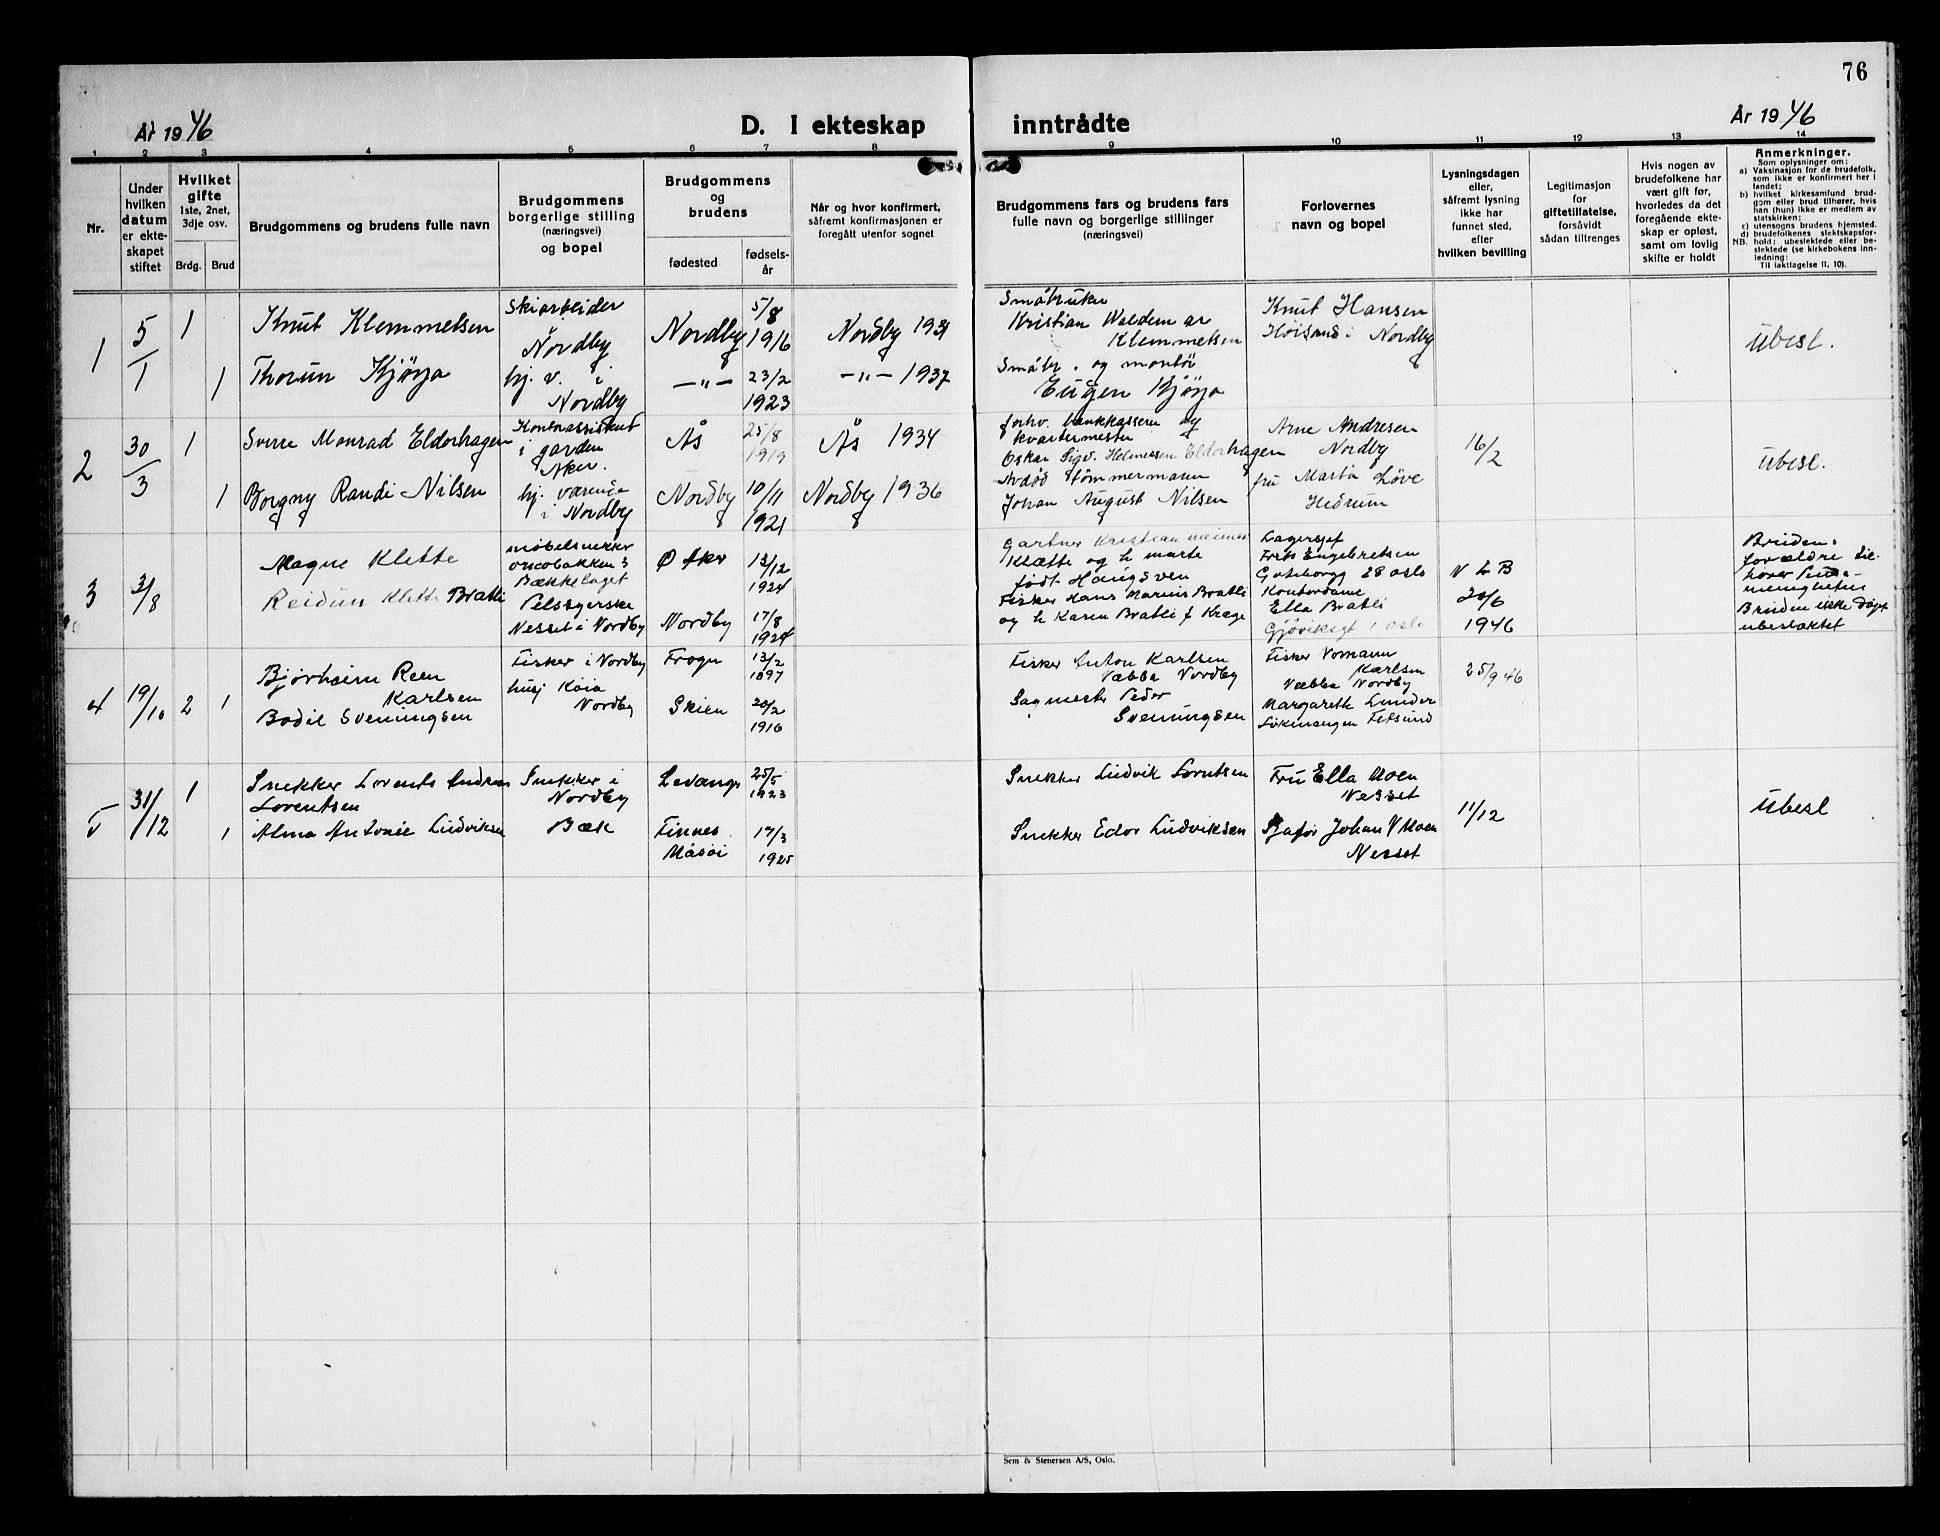 76
År 1946
D. I ekteskap
inntrådte
År 1946
1 2 3 4 5 6 7 8 9 10 11 12 13 14
Nr.
Under
hvilken
datum
er ekte-
skapet
stiftet
Hvilket
gifte
1ste, 2net,
3dje osv.
Brdg. Brud
Brudgommens og brudens fulle navn
Brudgommens
borgerlige stilling
(næringsvei)
og bopel
Brudgommens
og
brudens
fødested
fødsels-
år
Når og hvor konfirmert,
såfremt konfirmasjonen er
foregått utenfor sognet
Brudgommens fars og brudens fars
fulle navn og borgerlige stillinger
(næringsvei)
Forlovernes
navn og bopel
Lysningsdagen
eller,
såfremt lysning
ikke har
funnet sted,
efter
hvilken bevilling
Legitimasjon
for
giftetillatelse,
forsåvidt
sådan tiltrenges
Hvis nogen av
brudefolkene har
vært gift før,
hvorledes da det
foregående ekte-
skap er opløst,
samt om lovlig
skifte er holdt
Anmerkninger.
Som oplysninger om:
a) Vaksinasjon for de brudefolk,
som ikke er konfirmert her i
landet;
b) hvilket kirkesamfund brud-
gom eller brud tilhører, hvis
han (hun) ikke er medlem av
statskirken;
c) utensogns brudens hjemsted.
d) brudefolkenes slektskapsfor-
NB. hold: ubeslektede eller be-
slektede (se kirkebokens inn-
ledning:
Til iakttagelse II, 10).
1
5/1
1
Knut Klemmetsen
Skiarbeider
Nordby
Nordby
5/8
1916
Nordby 1931
Småbruker
Kristian Waldemar
Klemmetsen
Knut Hansen
i Nordby
ubesl.
1
Thorun Kjørja
hj. v. i
Nordby
—"—
23/2
1923
—"— 1937
Småbr. og montør
Eugen Kjørja
2
30/3
1
Sverre Monrad Eldorhagen
i garden
Aker.
Ås
25/8
1919
Ås 1934
forhv. bankkasserer og
kvartermester
Oskar Sigv. Eldorhagen
Arne Andresen
Nordby
16/2
ubesl.
1
Borgny Randi Nilsen
hj. værende
i Nordby
Nordby
10/11
1921
Nordby 1936
Avdød tømmermann
Johan August Nilsen
fru Marta Løve
Hedrum
3
3/8
Magne Klette
Reidun Klette Bratli
møbelsnekker
Bækkelaget
Pelssyerske
Nesset i Nordby
Ø Aker
13/12
1924
Nordby
17/8
1924
Gartner Kristian
Klætte og h marte
født Haugsven
Fisker Hans Marius Bratli
og h Karen Bratli f Krage
Lagersjef
Engebretsen
Gøteborgg 28 Oslo
Kontordame
Ella Bratli
Gjøviksgt 1 Oslo
N L B
20/6
1946
Brudens
forældre til-
hører Pinse-
menigheten
Bruden ikke døpt
ubeslæktet
4
19/10
2 1
Bjørheim Reen
Karlsen
Bodil Sveningsen
Fisker i Nordby
husj Kaia
Nordby
Frogn
13/2
1897
Skien
20/2
1916
Fisker Anton Karlsen
Væbba Nordby
Sagmester Peder
Sveningsen
Fisker Normann
Karlsen
Væbba Nordby
Margarethe Lunder
Fetsund
25/9 46
5
31/12
1
Snekker Lorents Andreas
Lorentsen
Snekker i
Nordby
Levanger
25/5
1923
Snekker Ludvik Lorntsen
Fru Ella Moen
Nesset
11/12
ubesl
1
Alma Antonie Ludviksen
Bæk
Finnes
Måsøi
17/3
1925
Snekker Edor Ludviksen
Sjafør Johan V Moen
Nesset
Sem & Stenersen A/S, Oslo.